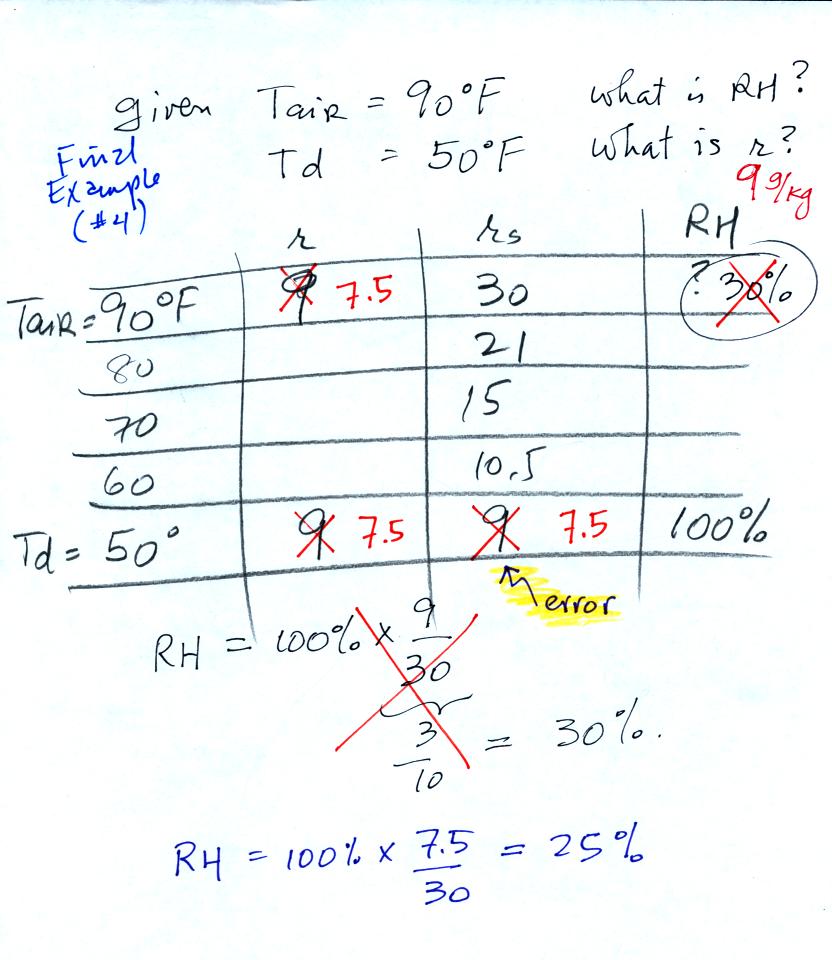 given Tair = 90°F what is RH?
Td = 50°F what is r?
Final
Example
(#4)
9 g/kg
r rs RH
Tair = 90°F 9 7.5 30 ? 30%
80 21
70 15
60 10.5
Td = 50° 9 7.5 9 7.5 100%
error
RH = 100% x 9/30
3/10 = 30%.
RH = 100% x 7.5/30 = 25%